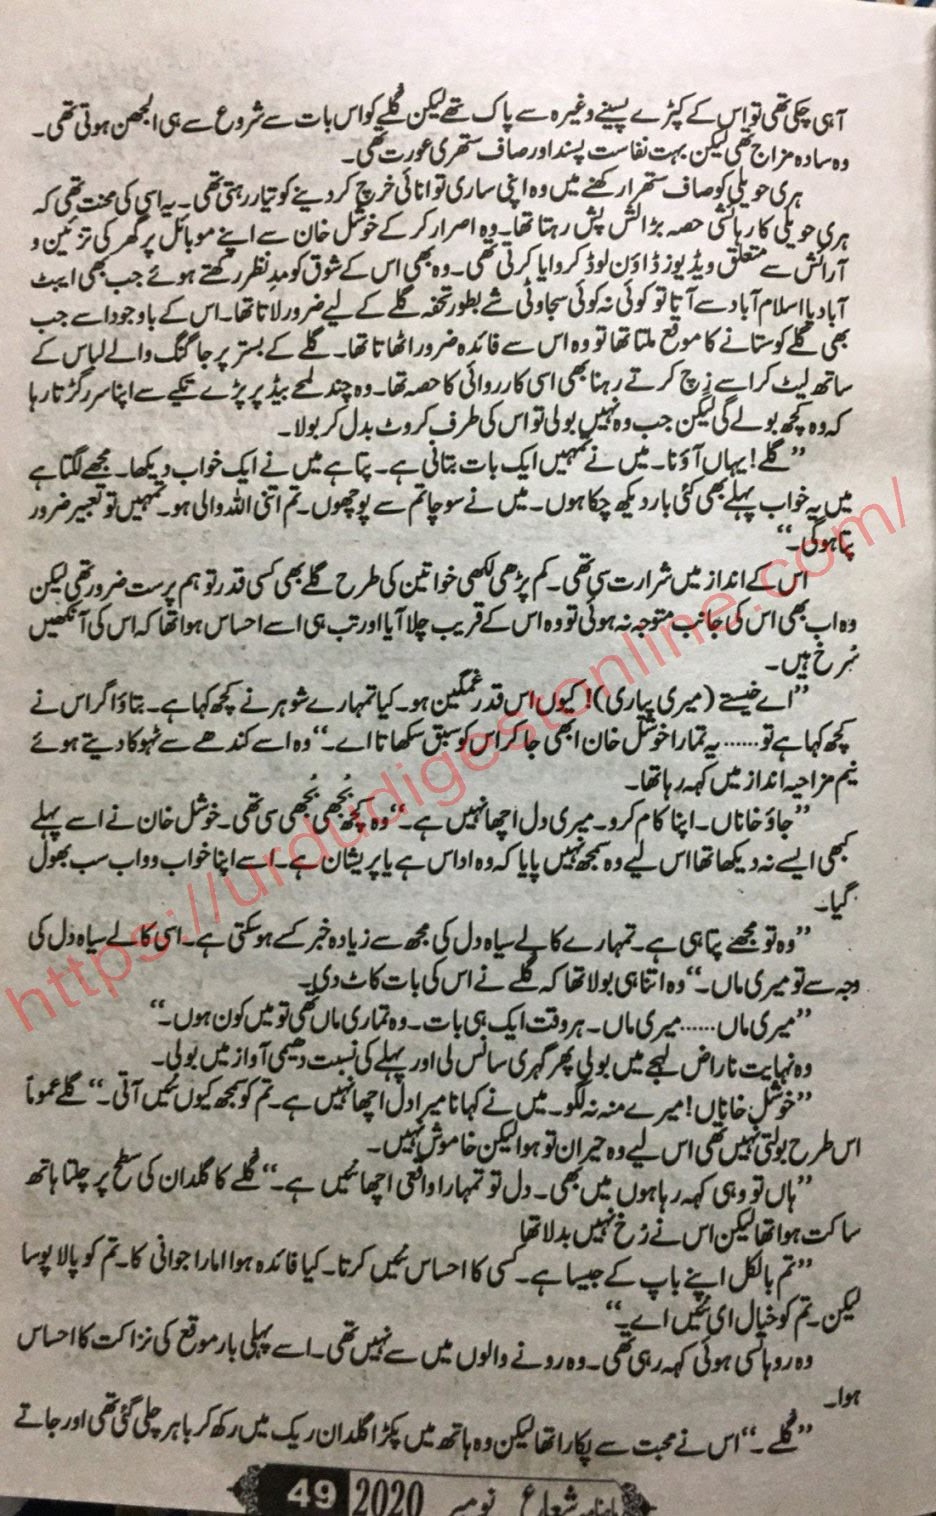 آہی چکی تھی تو اس کے کپڑے پسینے وغیرہ سے پاک تھے لیکن گلے کو اس بات سے شروع سے ہی الجھن ہوتی تھی۔
وہ سادہ مزاج تھی لیکن بہت نفاست پسند اور صاف ستھری عورت تھی۔
ہری حویلی کو صاف ستھرا رکھنے میں وہ اپنی ساری توانائی خرچ کر دینے کو تیار رہتی تھی۔ یہ اسی کی محنت تھی کہ
ہری حویلی کا رہائشی حصہ بڑا لش پش رہتا تھا۔ وہ اصرار کر کے خوشل خان سے اپنے موبائل پر گھر کی تزئین و
آرائش سے متعلق ویڈیوز ڈاؤن لوڈ کروایا کرتی تھی۔ وہ بھی اس کے شوق کو مدِنظر رکھتے ہوئے جب بھی ایبٹ
آباد یا اسلام آباد سے آتا تو کوئی نہ کوئی سجاوٹی شے بطور تحفہ گلے کے لیے ضرور لاتا تھا۔ اس کے باوجود اسے جب
بھی گلے کو ستانے کا موقع ملتا تھا تو وہ اس سے فائدہ ضرور اٹھاتا تھا۔ گلے کے بستر پر جاگنگ والے لباس کے
ساتھ لیٹ کر اسے زِچ کرتے رہنا بھی اسی کارروائی کا حصہ تھا۔ وہ چند لمحے بیڈ پر پڑے تکیے سے اپنا سر رگڑتا رہا
کہ وہ کچھ بولے گی لیکن جب وہ نہیں بولی تو اس کی طرف کروٹ بدل کر بولا۔
”گلے! یہاں آؤ نا۔ میں نے تمہیں ایک بات بتانی ہے۔ پتا ہے میں نے ایک خواب دیکھا۔ مجھے لگتا ہے
میں یہ خواب پہلے بھی کئی بار دیکھ چکا ہوں۔ میں نے سوچا تم سے پوچھوں۔ تم اتنی اللہ والی ہو۔ تمہیں تو تعبیر ضرور
پتا ہو گی۔“
اس کے انداز میں شرارت سی تھی۔ کم پڑھی لکھی خواتین کی طرح گلے بھی کسی قدر تو ہم پرست ضرور تھی لیکن
وہ اب بھی اس کی جانب متوجہ نہ ہوئی تو وہ اس کے قریب چلا آیا اور تب ہی اسے احساس ہوا تھا کہ اس کی آنکھیں
سُرخ ہیں۔
”اے خیستے (میری پیاری)! کیوں اس قدر غمگین ہو۔ کیا تمہارے شوہر نے کچھ کہا ہے۔ بتاؤ اگر اس نے
کچھ کہا ہے تو...... یہ تمارا خوشل خان ابھی جا کر اس کو سبق سکھاتا اے۔“ وہ اسے کندھے سے ٹہوکا دیتے ہوئے
نیم مزاحیہ انداز میں کہہ رہا تھا۔
”جاؤ خاناں۔ اپنا کام کرو۔ میری دل اچھا نہیں ہے۔“ وہ کچھ بُجھی بُجھی سی تھی۔ خوشل خان نے اسے پہلے
کبھی ایسے نہ دیکھا تھا اس لیے وہ سمجھ نہیں پایا کہ وہ اداس ہے یا پریشان ہے۔ اسے اپنا خواب وواب سب بھول
گیا۔
”وہ تو مجھے پتا ہی ہے۔ تمہارے کالے سیاہ دل کی مجھ سے زیادہ خبر کسے ہو سکتی ہے۔ اسی کالے سیاہ دل کی
وجہ سے تو میری ماں۔“ وہ اتنا ہی بولا تھا کہ گلے نے اس کی بات کاٹ دی۔
”میری ماں...... میری ماں۔ ہر وقت ایک ہی بات۔ وہ تماری ماں تھی تو میں کون ہوں۔“
وہ نہایت ناراض لہجے میں بولی پھر گہری سانس لی اور پہلے کی نسبت دھیمی آواز میں بولی۔
”خوشل خاناں! میرے منہ نہ لگو۔ میں نے کہا نا میرا دل اچھا نہیں ہے۔ تم کو سمجھ کیوں نئیں آتی۔“ گلے عموماً
اس طرح بولتی نہیں تھی اس لیے وہ حیران تو ہوا لیکن خاموش نہیں۔
”ہاں تو وہی کہہ رہا ہوں میں بھی۔ دل تو تمہارا واقعی اچھا نئیں ہے۔“ گلے کا گلدان کی سطح پر چلتا ہاتھ
ساکت ہوا تھا لیکن اس نے رُخ نہیں بدلا تھا
”تم بالکل اپنے باپ کے جیسا ہے۔ کسی کا احساس نئیں کرتا۔ کیا فائدہ ہوا امارا جوانی کا۔ تم کو پالا پوسا
لیکن۔ تم کو خیال ای نئیں اے۔“
وہ روہانسی ہوئی کہہ رہی تھی۔ وہ رونے والوں میں سے نہیں تھی۔ اسے پہلی بار موقع کی نزاکت کا احساس
ہوا۔
”گلے۔“ اس نے محبت سے پکارا تھا لیکن وہ ہاتھ میں پکڑا گلدان ریک میں رکھ کر باہر چلی گئی تھی اور جاتے
ماہنامہ شعاع نومبر 2020 49
https://urdudigestonline.com/